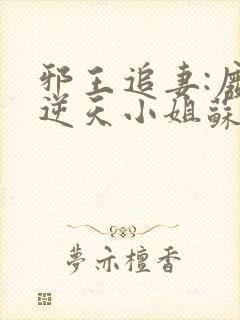 邪王追妻:
逆天小姐蘇
夢亦檀香